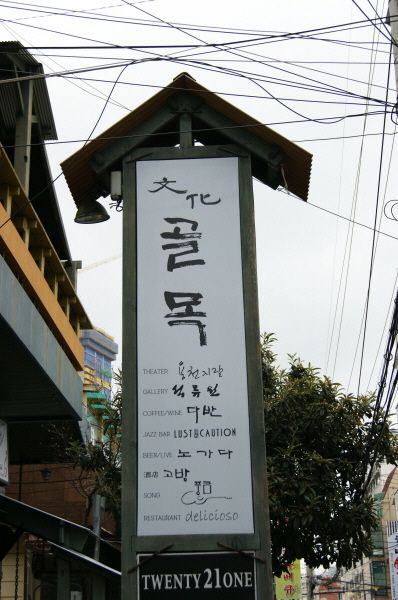 文化
골목
THEATER 용천지랄
GALLERY 석류원
COFFEE/WINE 다반
JAZZ BAR LUST@CAUTION
BEER/LIVE 노가다
酒店 고방
SONG 풍금
RESTAURANT delicioso
TWENTY21ONE